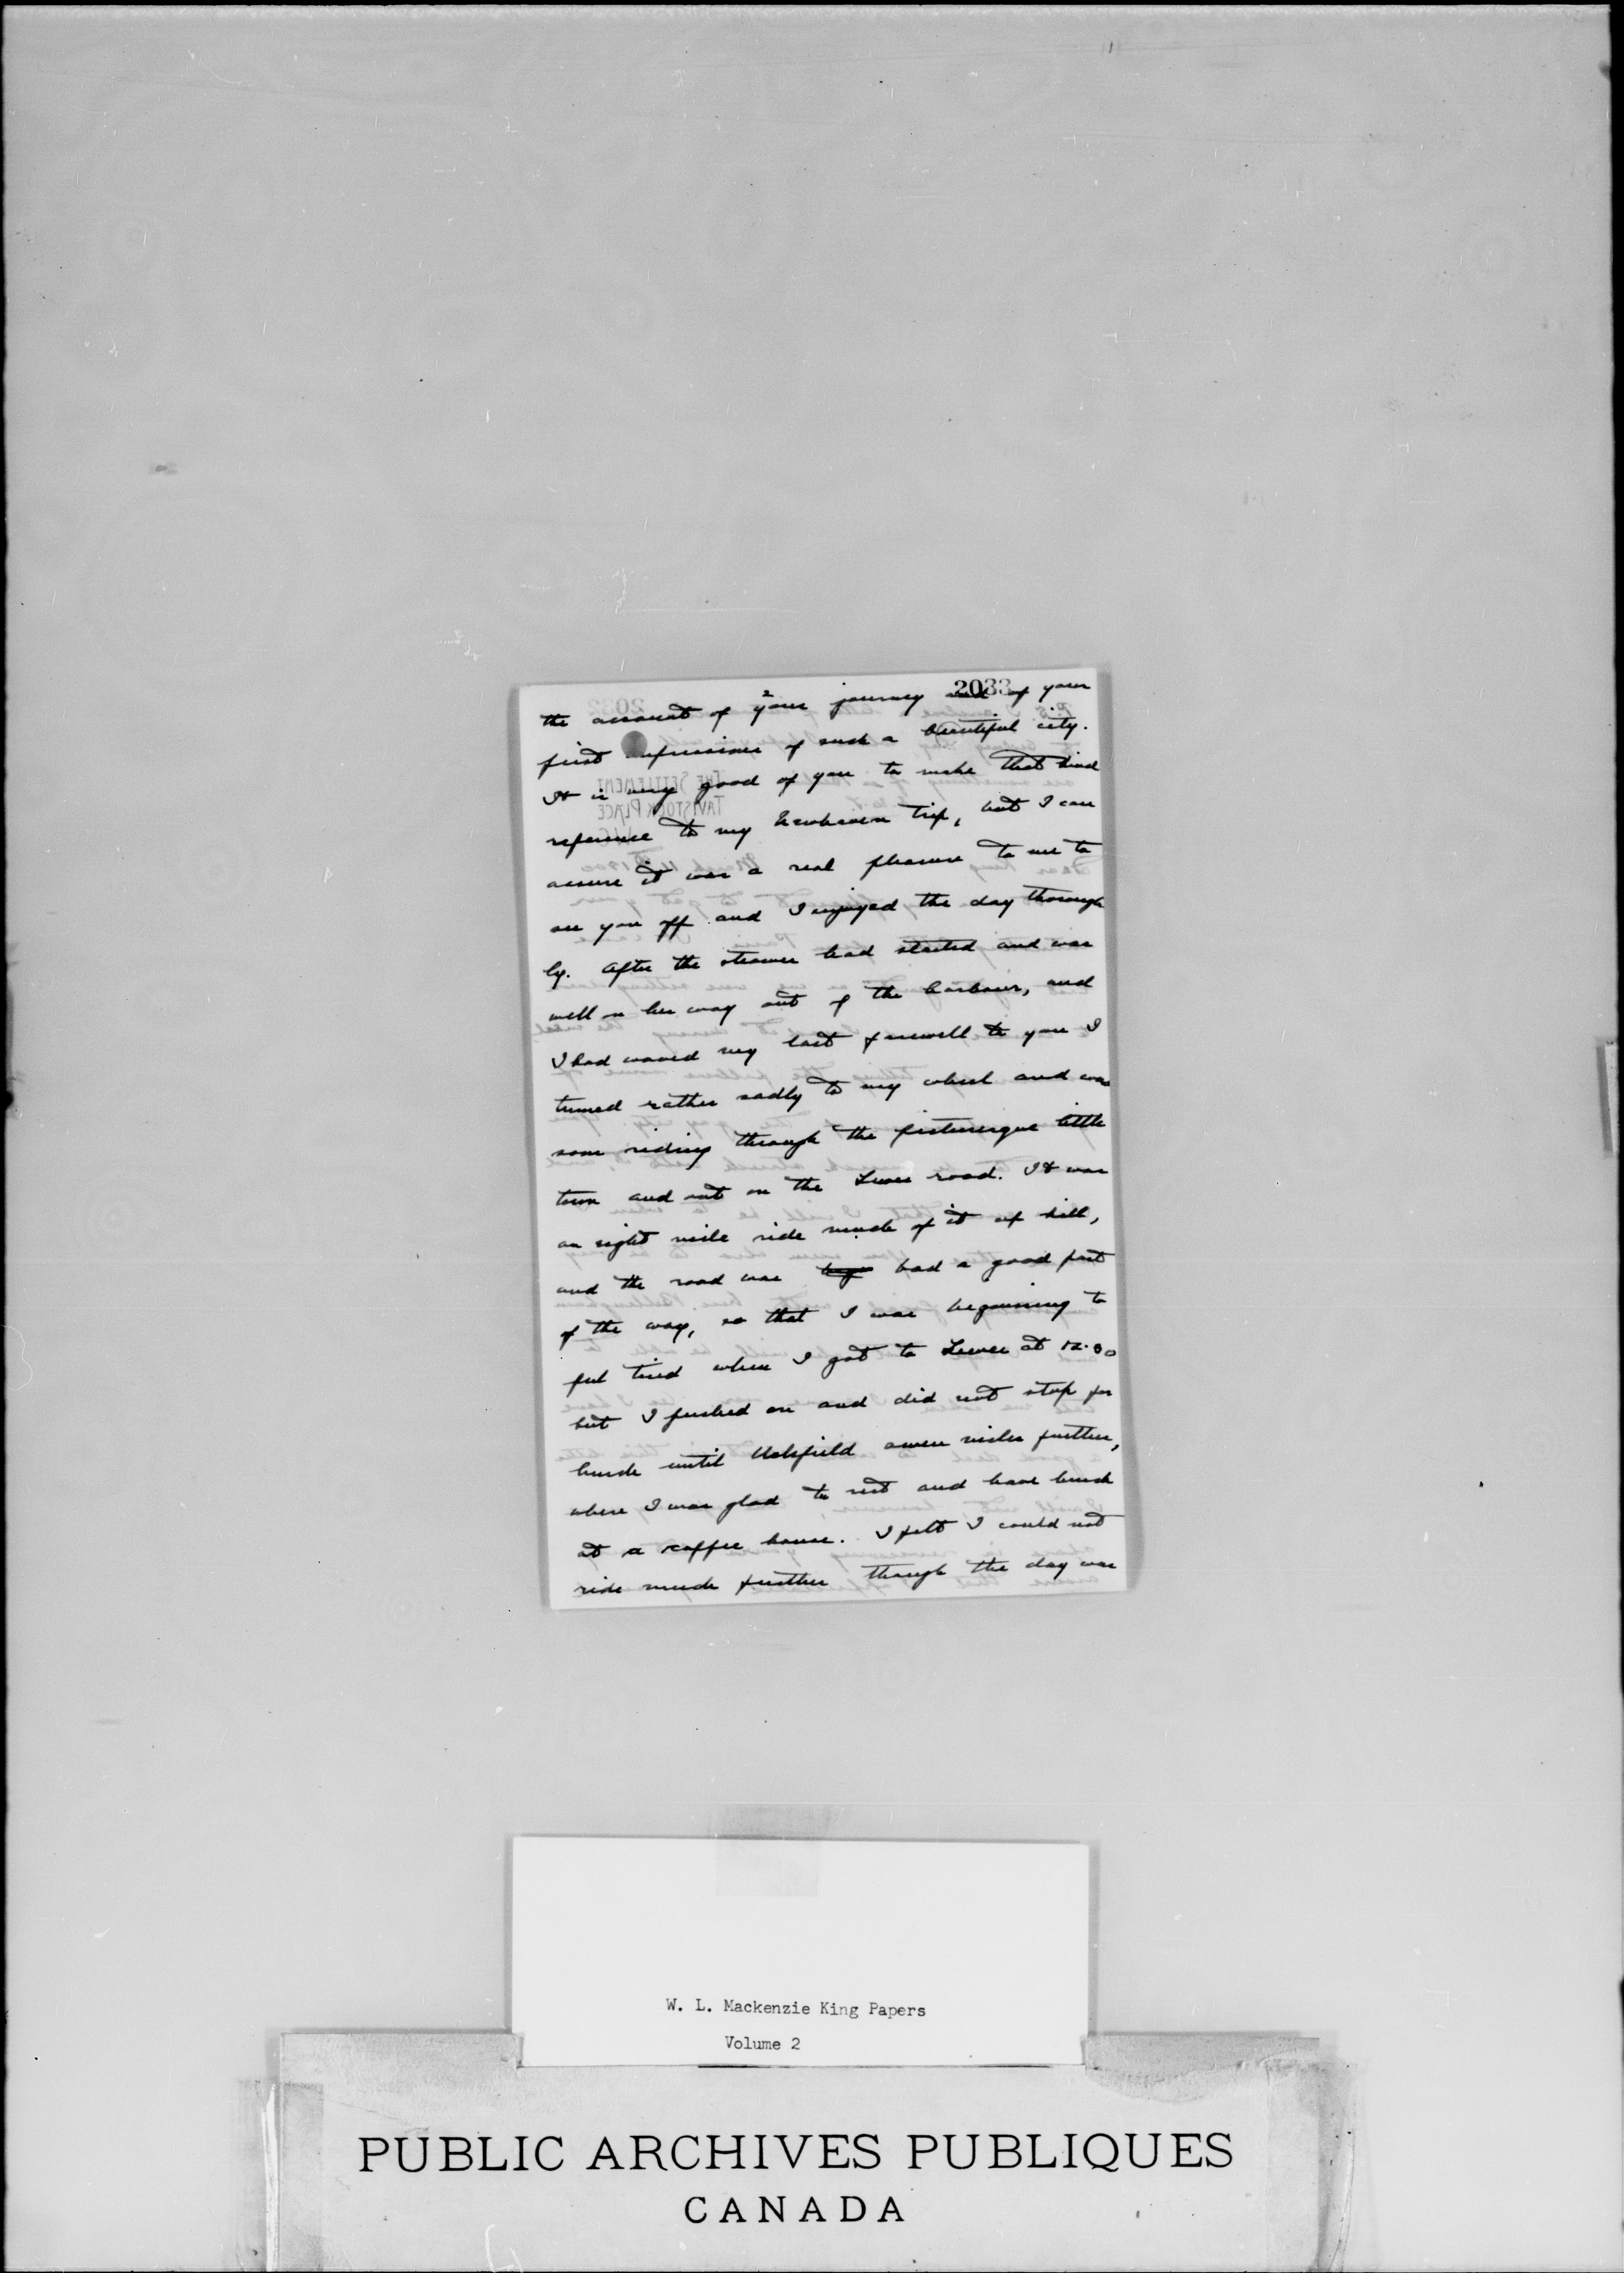 2033
2
the account of your journey and of your
first impressions of such a beautiful city.
It is very good of you to make that kind
reference to my Newhaven trip, but I can
assure it was a real pleasure to me to
see you off and I enjoyed the day thorough
ly. After the steamer had started and was
well on her way out of the harbour, and
I had waved my last farewell to you I
turned rather sadly to my wheel and was
soon riding through the picturesque little
town and out on the Lewes road. It was
an eight mile ride much of it up hill,
and the road was bad a good part
of the way, so that I was beginning to
feel tired when I got to Lewes at 12.30
but I pushed on and did not stop for
lunch until Uckfield seven miles further,
where I was glad to rest and have lunch
at a coffee house. I felt I could not
ride much further though the day was
THE SETTLEMENT
TAVISTOCK PLACE
W. L. Mackenzie King Papers
Volume 2
PUBLIC ARCHIVES PUBLIQUES
CANADA